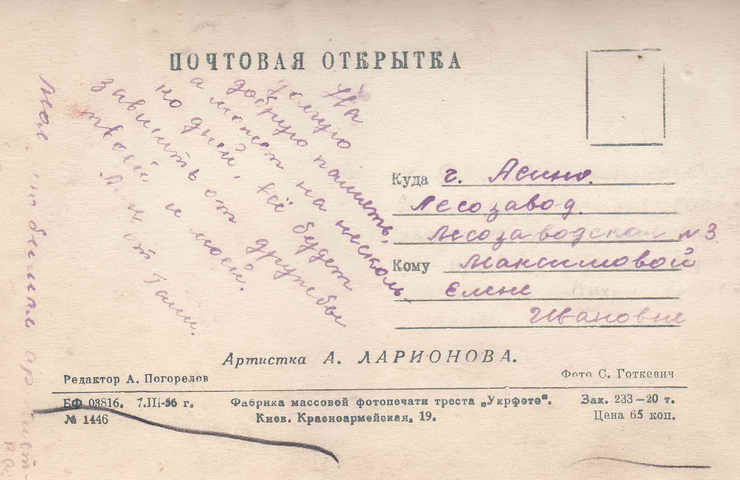 ПОЧТОВАЯ ОТКРЫТКА
На
долгую
добрую память,
а может на несколь-
но дней, всё будет
зависить от дружбы
твоей и моей.
от Гали.
Куда г. Асино.
Лесозавод.
Лесозаводская №3
Кому Максимовой
Елене
Ивановне
Артистка А. ЛАРИОНОВА.
Редактор А. Погорелов
Фото С. Готкевич
БФ 03816. 7.III-56 г.
Фабрика массовой фотопечати треста „Укрфото".
Зак. 233—20 т.
№ 1446
Киев. Красноармейская, 19.
Цена 65 коп.